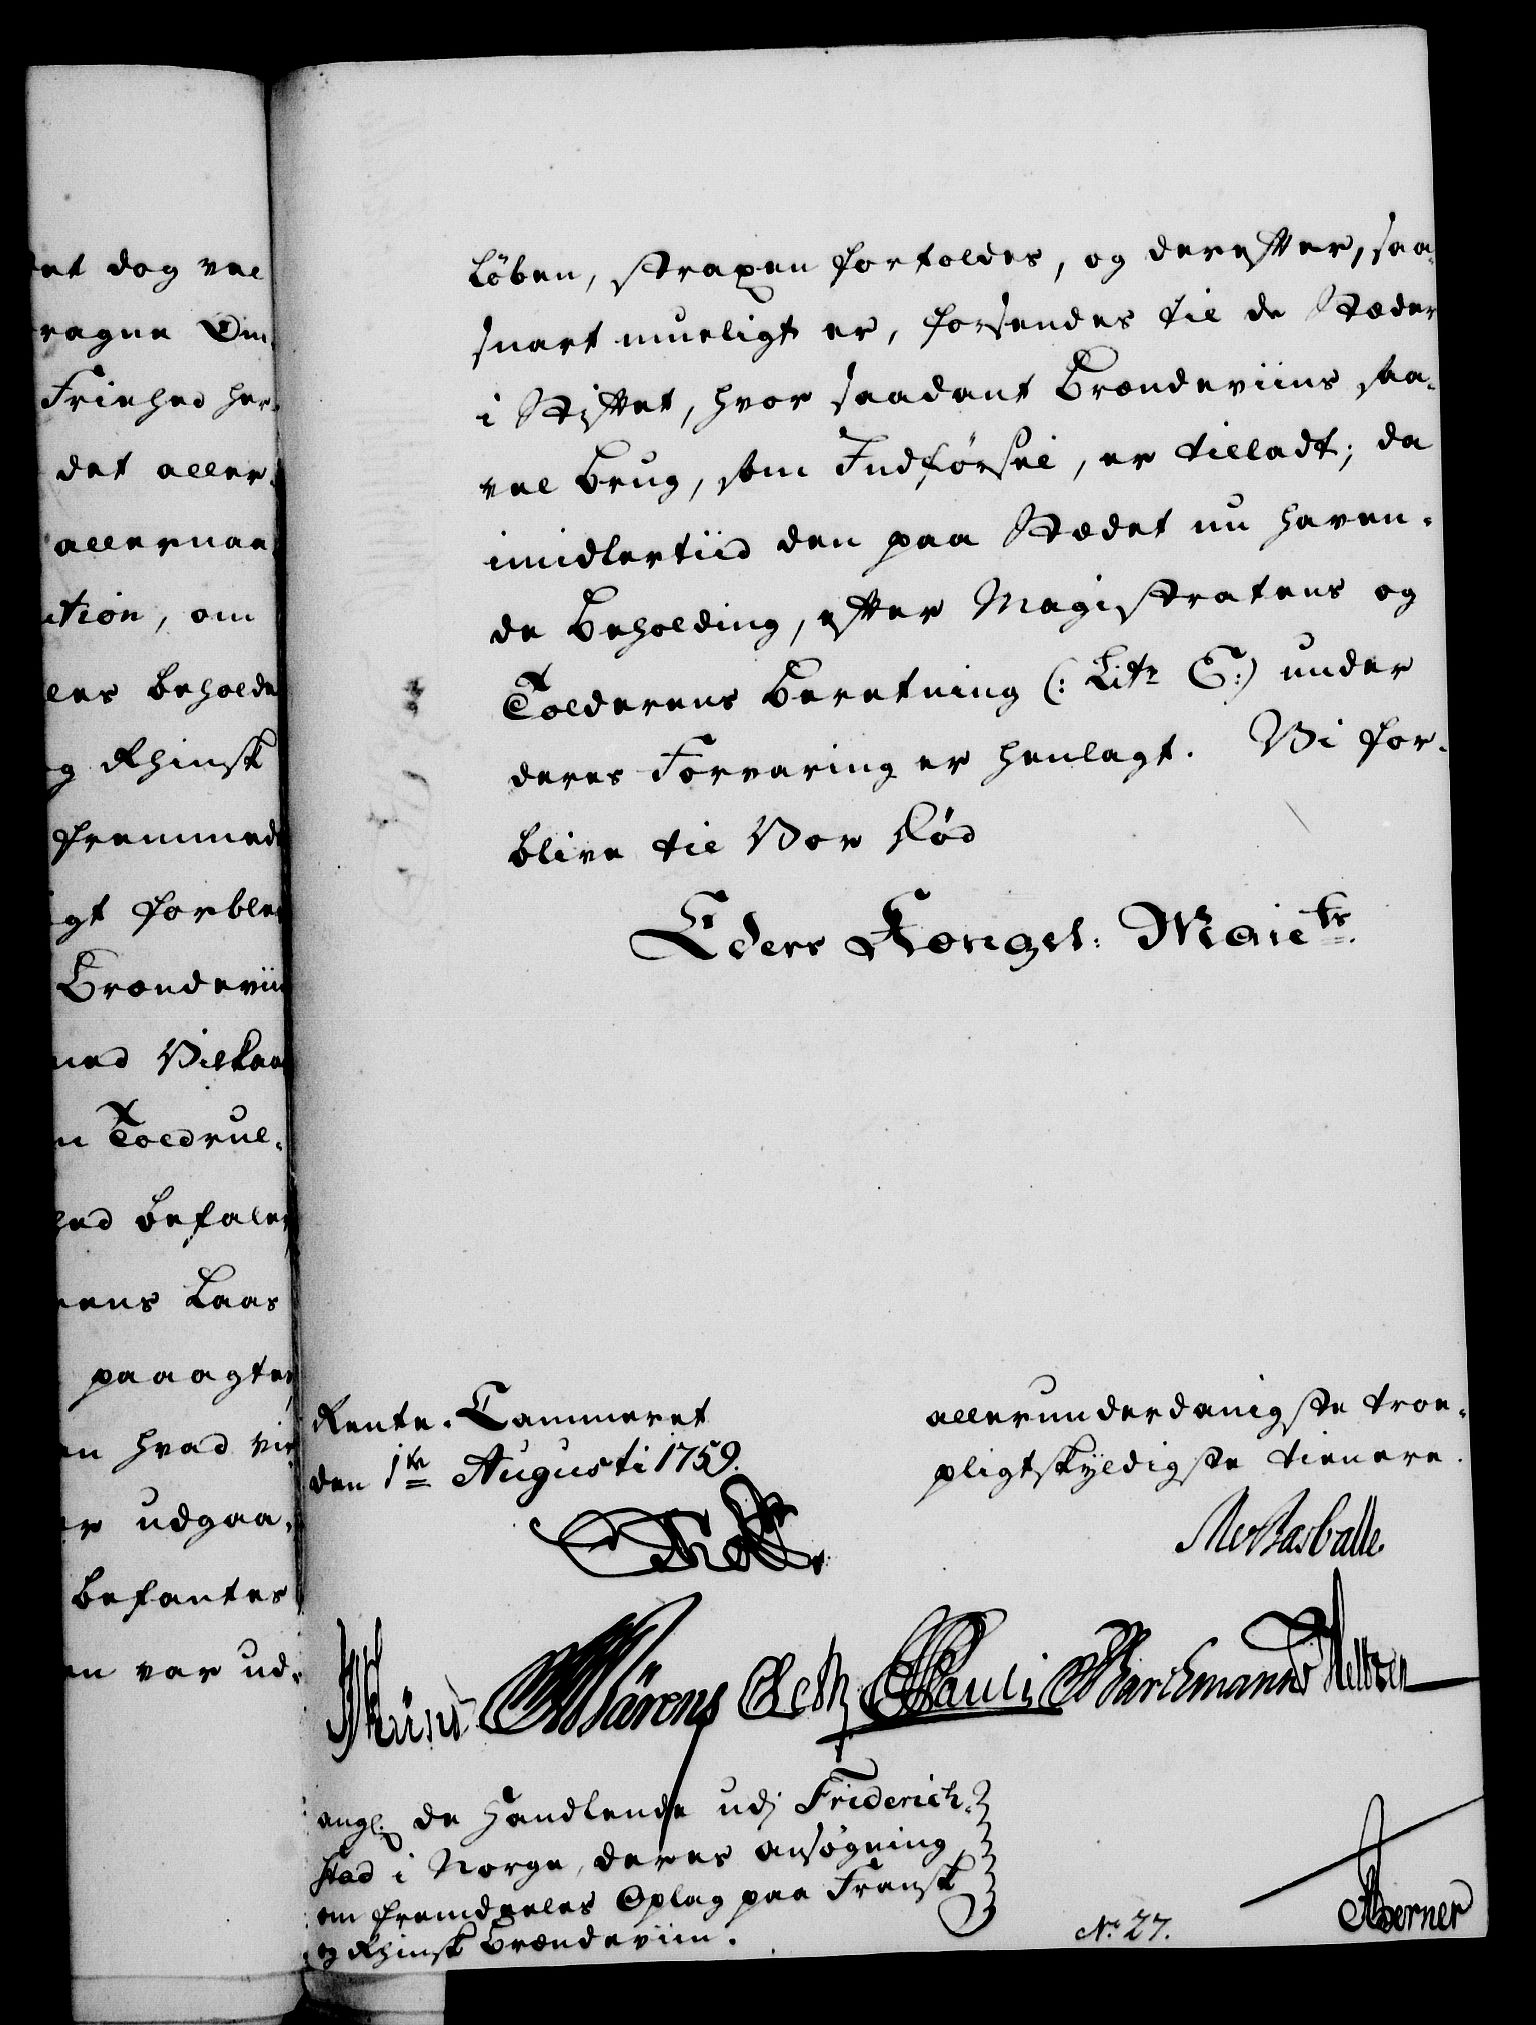 et dog vel
ragne Om
Friehed her-
det aller-
allernaa
ution, om
les beholde
g Rhinsk
fremmed
igt forble
Brændeviin
med Vilkaar
n Toldrul-
hed befales
ens Laas
paaagter
en hvad vi
er udgaa-
befantes
en var ud-
løben, strapen fortoldes, og derefter, saa-
snart mueligt er, forsendes til de Stæder
i Stiftet, hvor saadant Brændeviins saa-
vel Brug, som Indførsel, er tilladt; da
imidlertiid den paa Stædet nu haven-
de Beholding, efter Magistratens og
Tolderens Beretning (: Litr E:) under
deres Forvaring er henlagt. Vi for-
blive til Vor Død
Eders Kongel: Maits
Rente-Cammeret
den 1te Augusti 1759.
allerunderdanigste troe-
pligtskyldigste tienere.
Holst
Pauli Barchmann Meltzer
ang: de Handlende udj Friderich-
stad i Norge, deres ansøgning
om fremdeeles Oplag paa Fransk
og Rhinsk Brændeviin.
No 27.
Berner